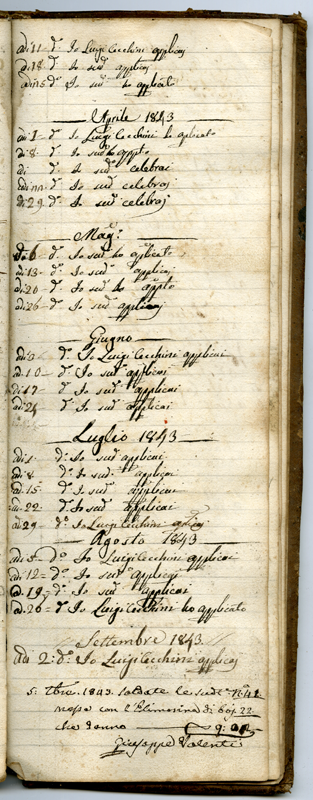 adi 11 d.º Io Luigi Cecchini applicai
adi 18 d.º Io sud.º applicai
adi 25 d.º Io sud.º ho applicato
Aprile 1843
adi 1 d.º Io Luigi Cecchini ho aplicato
adi 8 d.º Io sud.º ho app.to
adi d.º Io sud.º celebrai
adi 22 d.º Io sud.º celebrai
adi 29 d.º Io sud.º celebrai
Mag.º
adi 6 d.º Io sud.º ho applicato
adi 13 d.º Io sud.º applicai
adi 20 d.º Io sud.º ho app.to
adi 26 d.º Io sud.º applicai
Giugno
adi d.º Io Luigi Cecchini applicai
adi 10 d.º Io sud.º applicai
adi 17 d.º Io sud.º applicai
adi 24 d.º Io sud.º applicai
Luglio 1843
adi 1 d.º Io sud.º applicai
adi 8 d.º Io sud.º applicai
adi 15 d.º Io sud.º applicai
adi 22 d.º Io sud.º applicai
adi 29 d.º Io Luigi Cecchini applicai
Agosto 1843
adi 5 d.º Io Luigi Cecchini applicai
adi 12 d.º Io sud.º applicai
adi 19 d.º Io sud.º applicai
adi 26 d.º Io Luigi Cecchini ho applicato
Settembre 1843
Adi 2 d.º Io Luigi Cecchini applicai
5. 7bre. 1843. soldate le sud.e N.º 41
messe con l'Elimosina di 22
che danno 9:
Giuseppe Valenti